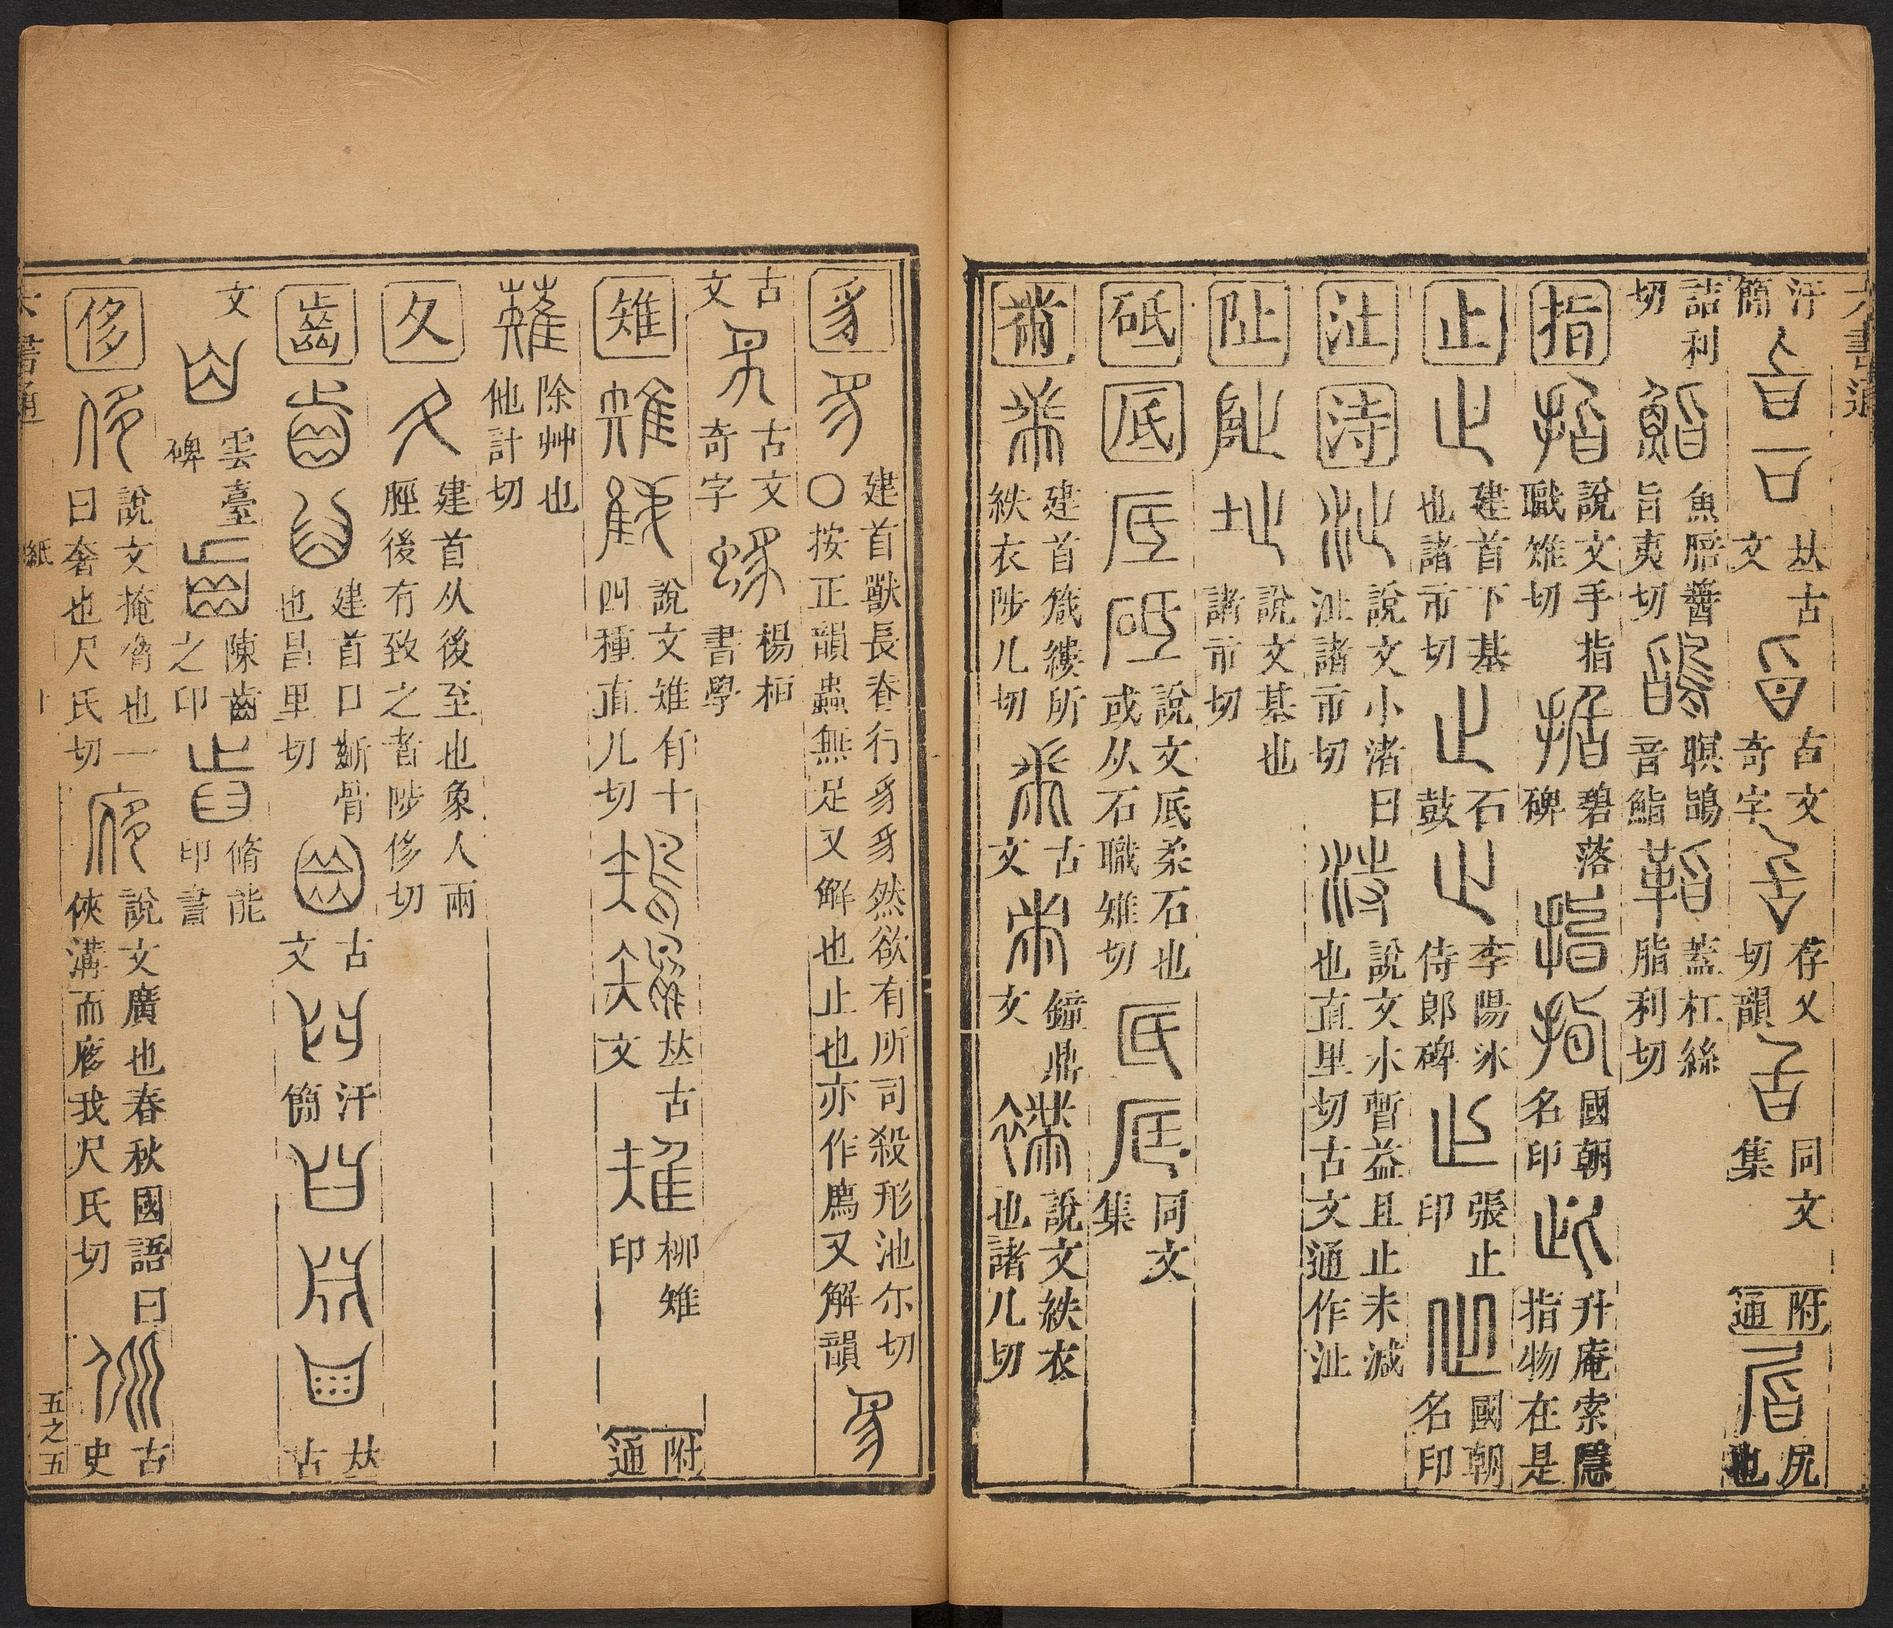 六書通
汗簡 𠀤古文 古文奇字 存乂切韻 同文集 附通 𡱂也
詰利切 魚䐹醬旨夷切 瞑鴲音鮨 蓋杠絲脂利切
指 說文手指職雉切 碧落碑 國朝名印 升庵索隱指物在是
止 建首下基也諸市切 石鼓 李陽冰侍郎碑 張止印 國朝名印
沚 洔 說文小渚曰沚諸市切 說文水暫益且止未減也直里切古文通作沚
阯 說文基也諸市切
砥 厎 說文厎柔石也或从石職雉切 同文集
黹 建首箴縷所紩衣陟几切 古文 鐘鼎文 說文紩衣也諸几切
豸 建首獸長脊行豸豸然欲有所司殺形池尒切○按正韻蟲無足又解也止也亦作廌又解韻
古文 古文奇字 楊桓書學
雉 說文雉有十四種直几切 𠀤古文 柳雉印 附通
薙 除艸也他計切
夂 建首从後至也象人兩脛後有致之者陟侈切
齒 建首口齗骨也昌里切 古文 汗簡 𠀤古
文 雲臺碑 陳齒之印 脩能印書
侈 說文掩脅也一曰奢也尺氏切 說文廣也春秋國語曰俠溝而㢋我尺氏切 古史
六書通 紙 五之五